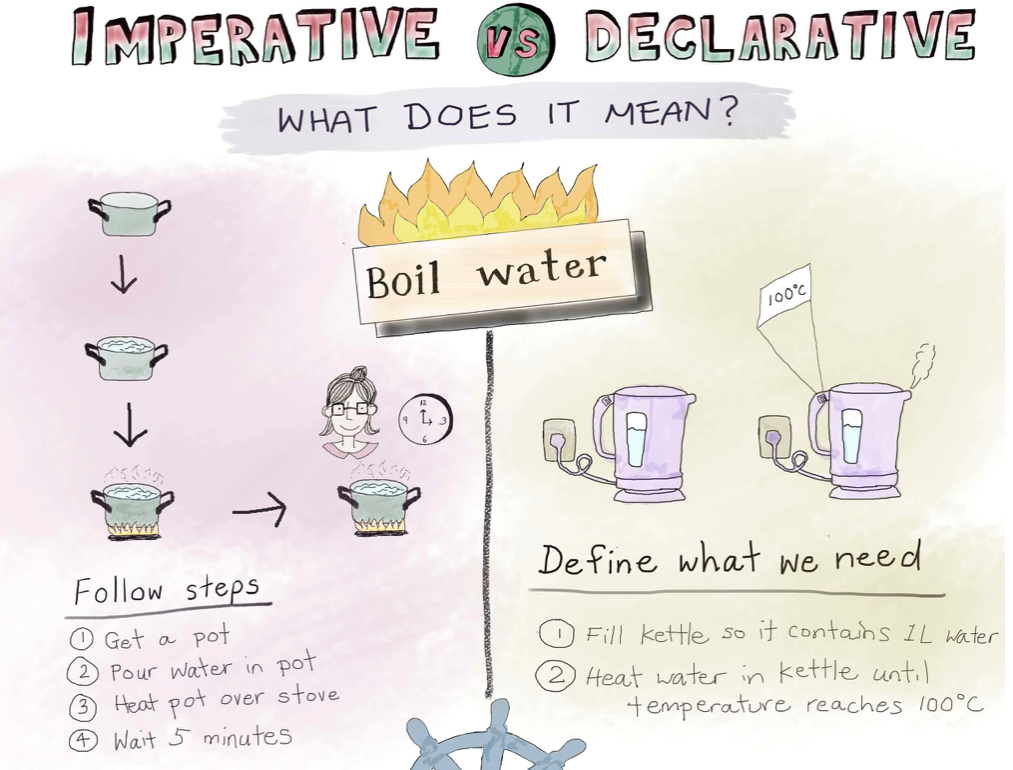 IMPERATIVE VS DECLARATIVE
WHAT DOES IT MEAN?
Boil water
12
9 3
6
100°C
Follow steps
1 Get a pot
2 Pour water in pot
3 Heat pot over stove
4 Wait 5 minutes
Define what we need
1 Fill kettle so it contains 1L water
2 Heat water in kettle until
temperature reaches 100°C